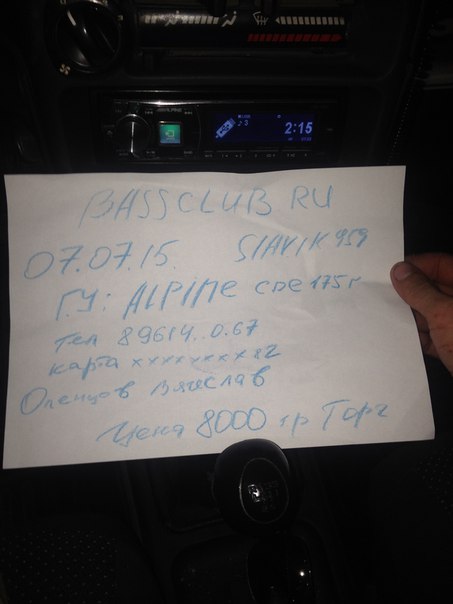 ALPINE
USB
♪ 3
2:15
BASSCLUB RU
07.07.15. SLAVIK959
Г.У: ALPINE CDE 175 r
Тел 89614..0.67
карта xxxxxxxxx82
Оленцов Вячеслав
Цена 8000 тр Торг